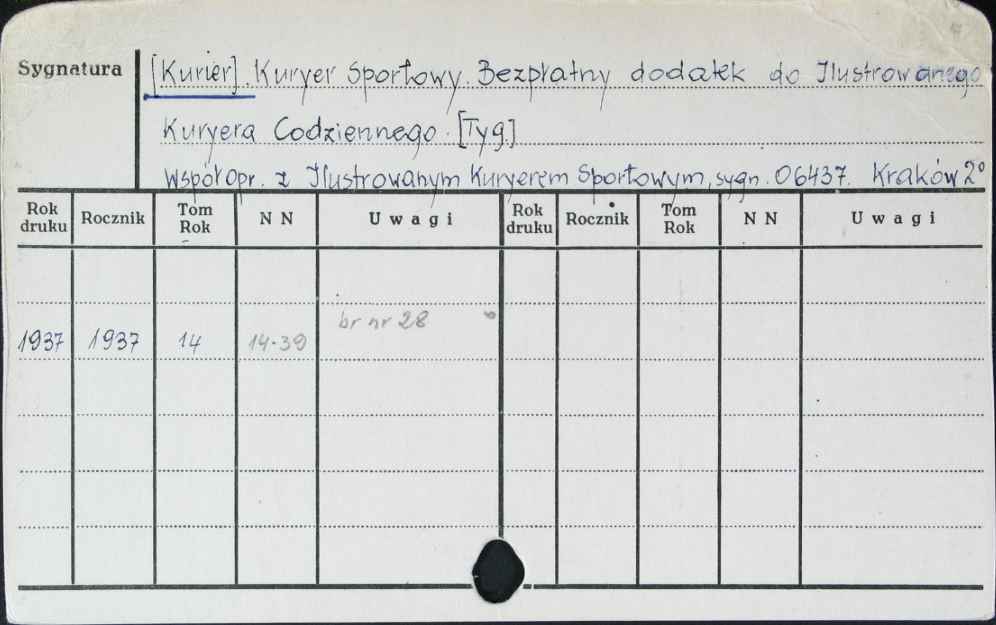 Sygnatura
[Kurier]. Kuryer Sportowy. Bezpłatny dodatek do Ilustrowanego
Kuryera Codziennego. [Tyg.]
Współopr. z Ilustrowanym Kuryerem Sportowym, sygn. 06437. Kraków 2°
Rok druku Rocznik Tom Rok NN Uwagi Rok druku Rocznik Tom Rok NN Uwagi
1937 1937 14 14-39 br nr 28